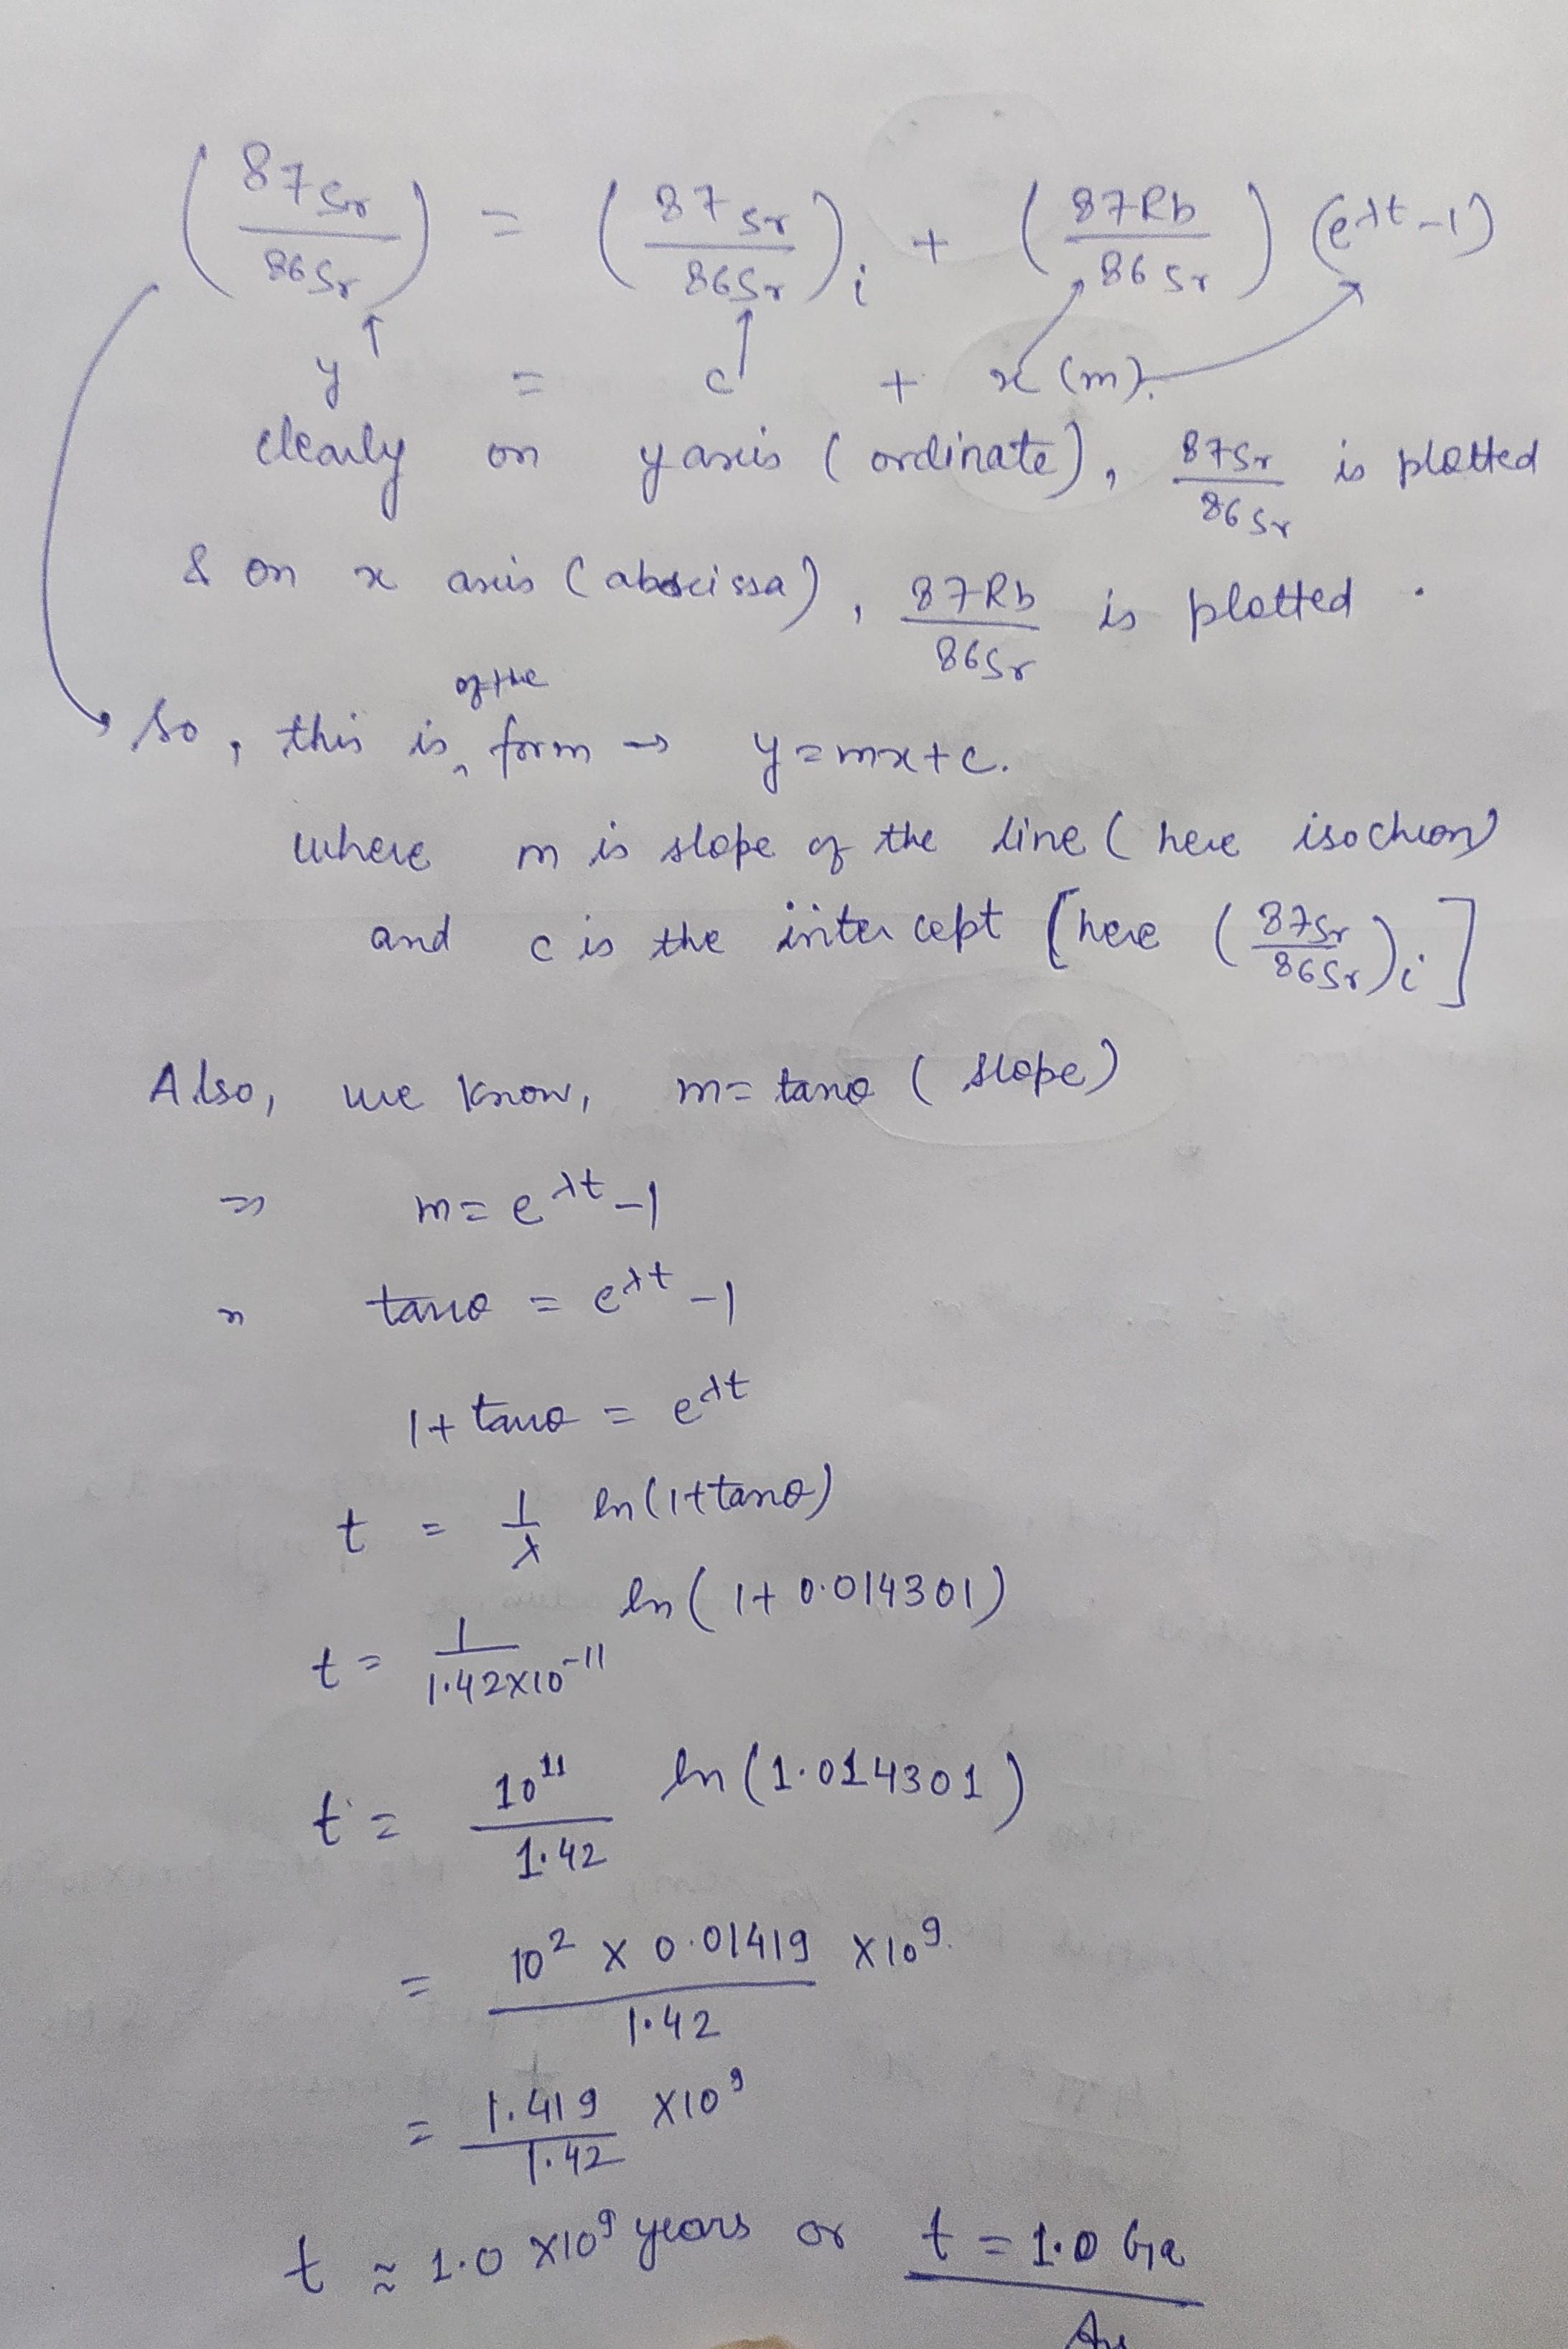 (87Sr/86Sr) = (87Sr/86Sr)i + (87Rb/86Sr) (e^λt - 1)
y = c + x (m).
clearly on y axis (ordinate), 87Sr/86Sr is plotted
& on x axis (abscissa), 87Rb/86Sr is plotted.
so, this is of the form → y = mx + c.
where m is slope of the line (here isochron)
and c is the intercept [here (87Sr/86Sr)i]
Also, we know, m = tanθ (slope)
⇒ m = e^λt - 1
tanθ = e^λt - 1
1 + tanθ = e^λt
t = 1/λ ln(1+tanθ)
t = 1/1.42×10^-11 ln(1+0.014301)
t = 10^11/1.42 ln(1.014301)
= 10^2 × 0.01419/1.42 ×10^9.
= 1.419/1.42 ×10^9
t ≈ 1.0 ×10^9 years or t = 1.0 Ga